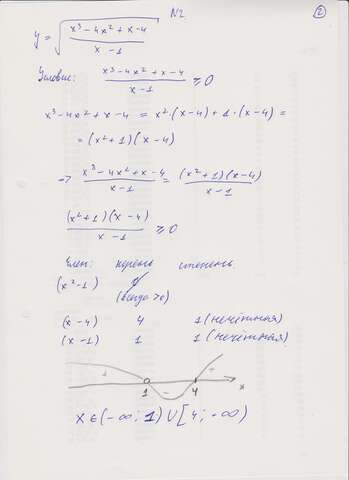 N2
2
y = √((x³-4x²+x-4)/(x-1))
Условие: (x³-4x²+x-4)/(x-1) ≥ 0
x³-4x²+x-4 = x²·(x-4)+1·(x-4) =
= (x²+1)(x-4)
=> (x³-4x²+x-4)/(x-1) = ((x²+1)(x-4))/(x-1)
((x²+1)(x-4))/(x-1) ≥ 0
Член: корень степень
(x²-1) ∅
(всегда >0)
(x-4) 4 1 (нечётная)
(x-1) 1 1 (нечётная)
+ - +
1 4 x
x ∈ (-∞; 1) ∪ [4; +∞)